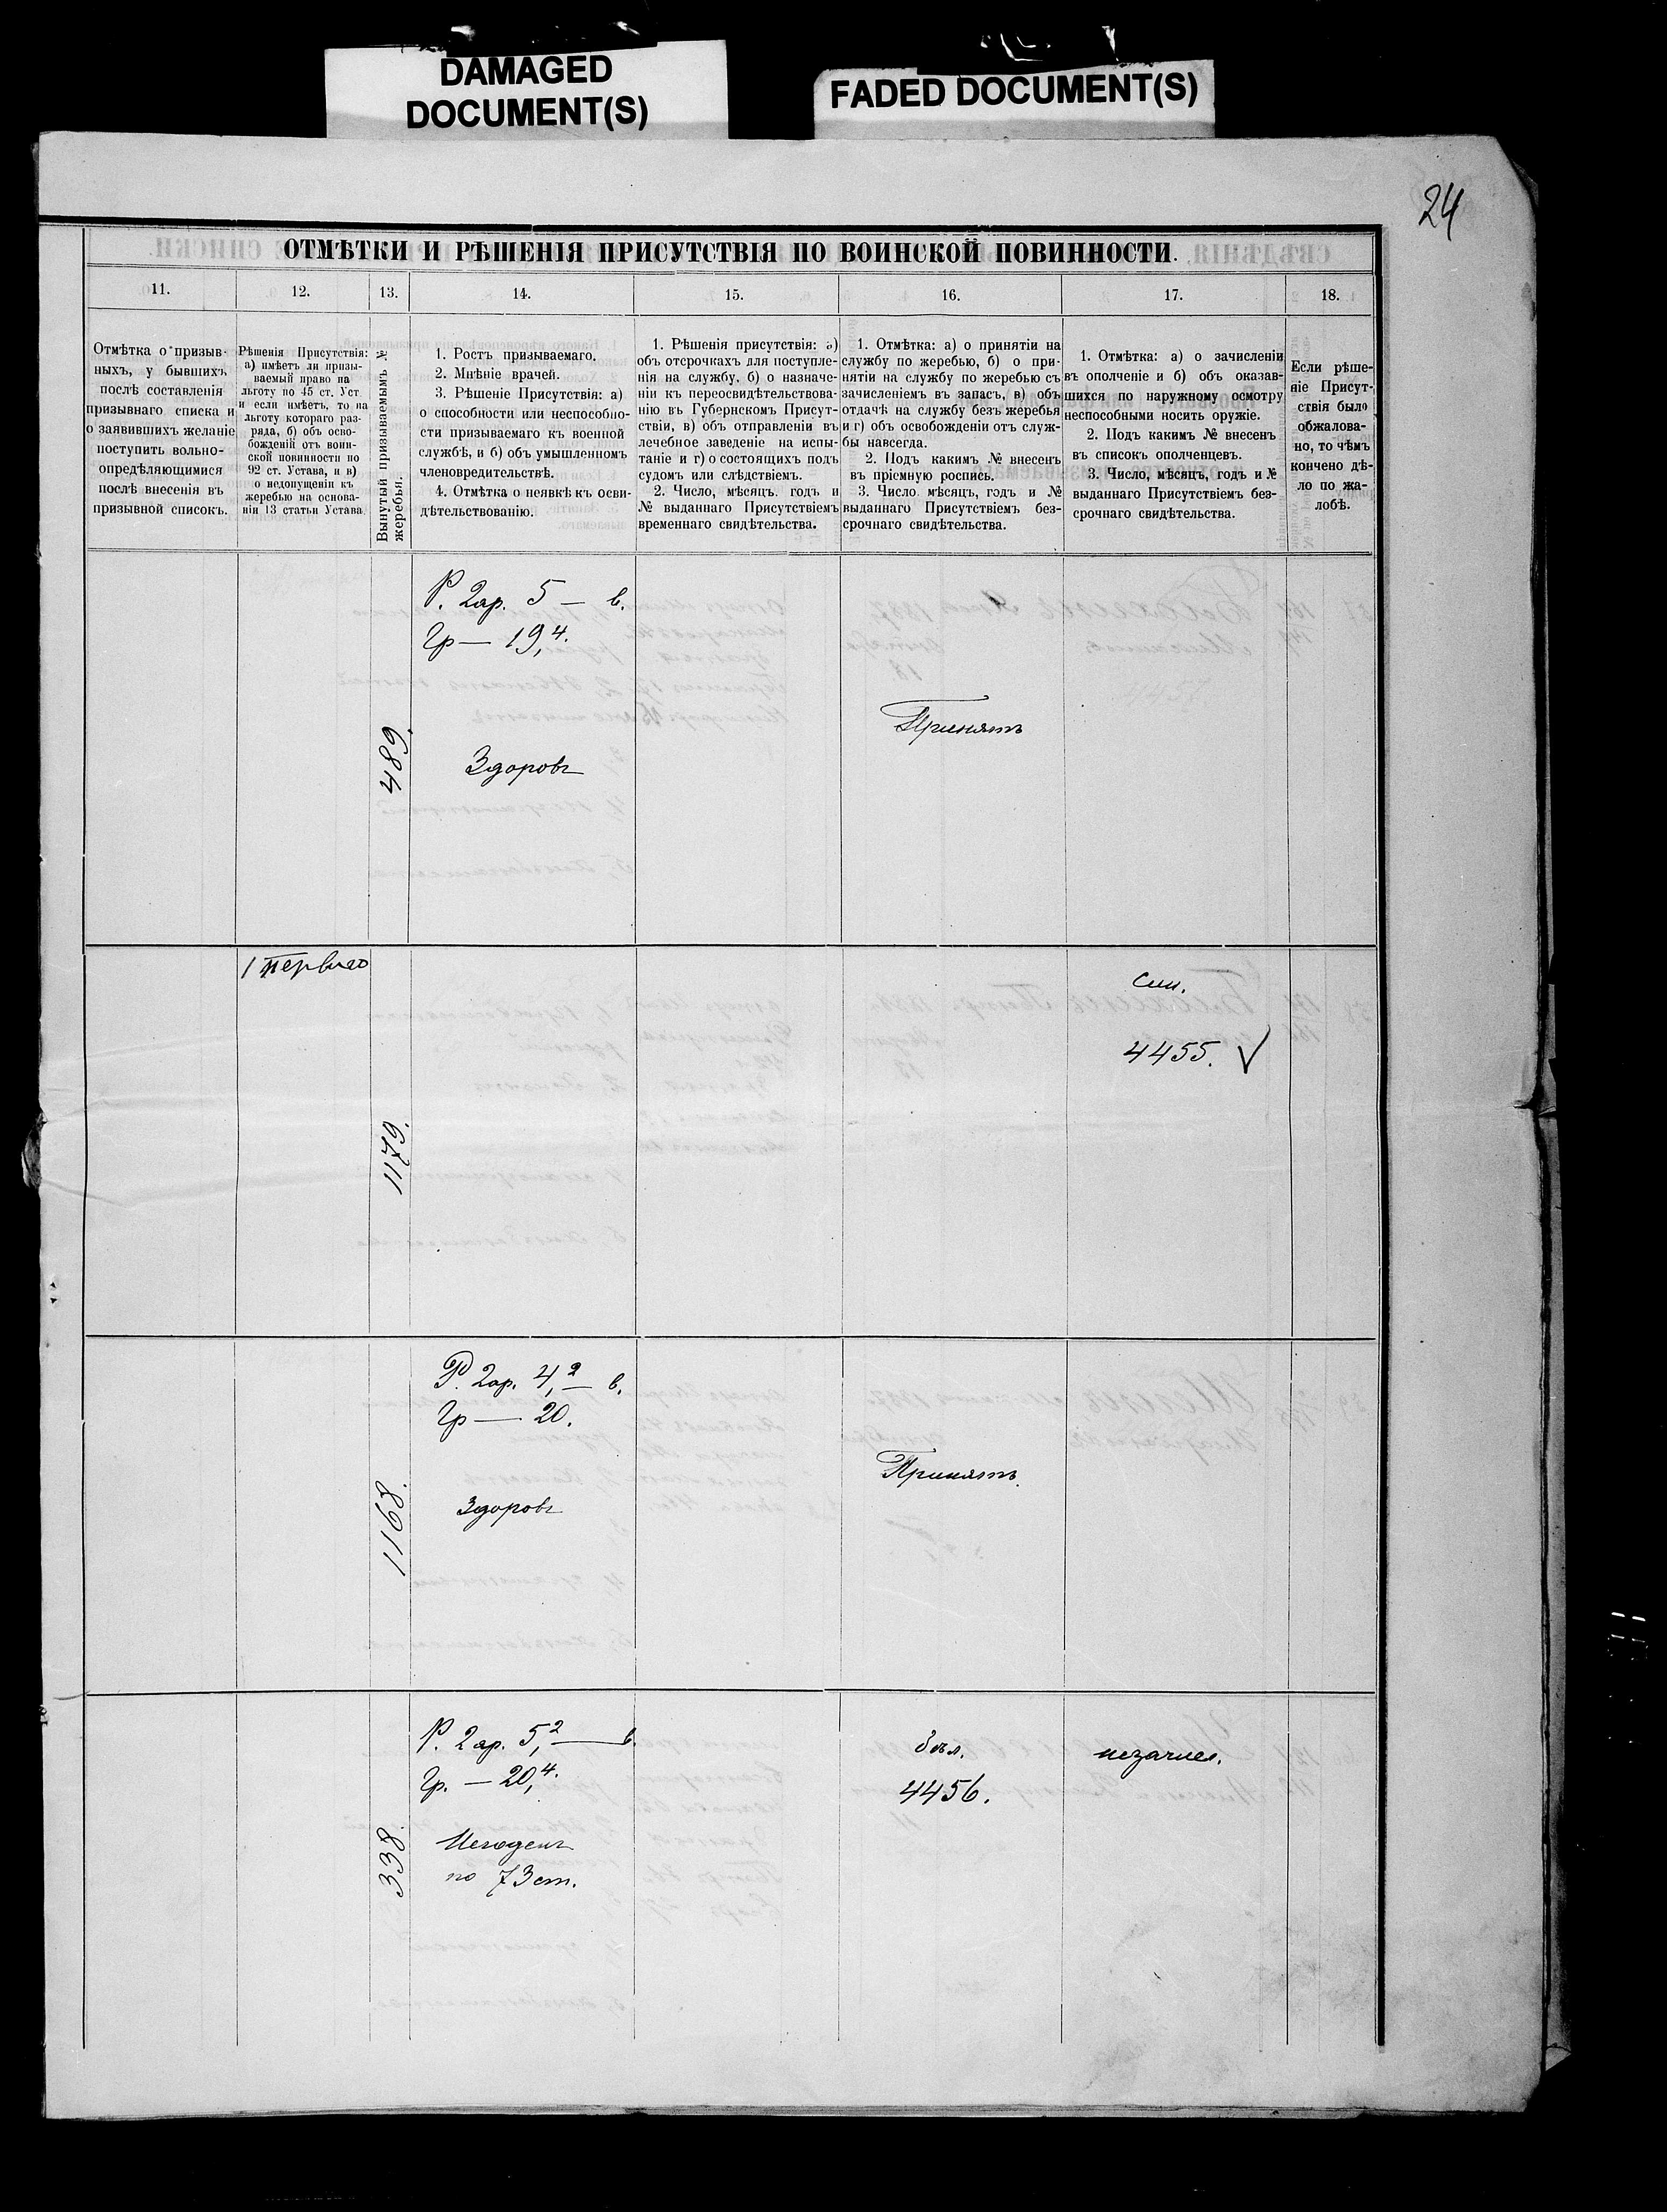 DAMAGED
DOCUMENT(S)
FADED DOCUMENT(S)
24
ОТМѢТКИ И РѢШЕНІЯ ПРИСУТСТВІЯ ПО ВОИНСКОЙ ПОВИННОСТИ.
11.
12.
13.
14.
15.
16.
17.
18.
Отмѣтка о призыв-
ныхъ, у бывшихъ
послѣ составленія
призывнаго списка и
о заявившихъ желаніе
поступить вольно-
опредѣляющимися
послѣ внесенія въ
призывной списокъ.
Рѣшенія Присутствія:
а) имѣетъ ли призы-
ваемый право на
льготу по 45 ст. Уст
и если имѣетъ, то на
льготу котораго раз-
ряда, б) объ осво-
божденіи отъ воин-
ской повинности по
92 ст. Устава, и в)
о недопущеніи къ
жеребью на основа-
ніи 13 статьи Устава.
Вынутый призываемымъ №
жеребья.
1. Ростъ призываемаго.
2. Мнѣніе врачей.
3. Рѣшеніе Присутствія: а)
о способности или неспособно-
сти призываемаго къ военной
службѣ, и б) объ умышленномъ
членовредительствѣ.
4. Отмѣтка о неявкѣ къ осви-
дѣтельствованію.
1. Рѣшенія присутствія: а)
объ отсрочкахъ для поступле-
нія на службу, б) о назначе-
ніи къ переосвидѣтельствова-
нію въ Губернскомъ Присут-
ствіи, в) объ отправленіи въ
лечебное заведеніе на испы-
таніе и г) о состоящихъ подъ
судомъ или слѣдствіемъ.
2. Число, мѣсяцъ. годъ и
№ выданнаго Присутствіемъ
временнаго свидѣтельства.
1. Отмѣтка: а) о принятіи на
службу по жеребью, б) о при-
нятіи на службу по жеребью съ
зачисленіемъ въ запасъ, в) объ
отдачѣ на службу безъ жеребья
и г) объ освобожденіи отъ служ-
бы навсегда.
2. Подъ какимъ № внесенъ
въ пріемную роспись.
3. Число мѣсяцъ, годъ и №
выданнаго Присутствіемъ без-
срочнаго свидѣтельства.
1. Отмѣтка: а) о зачисленіи
въ ополченіе и б) объ оказав-
шихся по наружному осмотру
неспособными носить оружіе.
2. Подъ какимъ № внесенъ
въ списокъ ополченцевъ.
3. Число, мѣсяцъ, годъ и №
выданнаго Присутствіемъ без-
срочнаго свидѣтельства.
Если рѣше-
ніе Присут-
ствія было
обжалова-
но, то чѣмъ
кончено дѣ-
ло по жа-
лобѣ.
Р. 2ар. 5 — в.
Гр — 19,4.
489.
Здоровъ
Принятъ
1 перваго
1179.
4455. √
Р. 2ар. 4,2 — в.
Гр — 20.
1168.
Здоровъ
Принятъ.
Р. 2 ар. 5,2 — в.
Гр. — 20,4.
338.
Негоденъ
по 73 ст.
4456.
незачис.